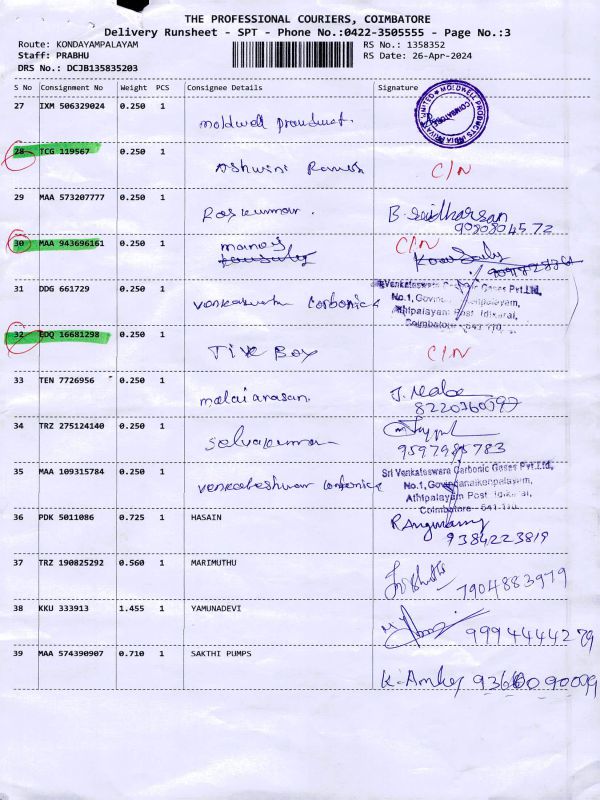 THE PROFESSIONAL COURIERS, COIMBATORE
Delivery Runsheet - SPT - Phone No.:0422-3505555 - Page No.:3
Route: KONDAYAMPALAYAM
RS No.: 1358352
Staff: PRABHU
RS Date: 26-Apr-2024
DRS No.: DCJB135835203
S No Consignment No Weight PCS Consignee Details Signature
27 IXM 506329024 0.250 1
MOLDWELL PRODUCTS INDIA PRIVATE LIMITED
COIMBATORE
28 TCG 119567 0.250 1
Ashwini Ramesh C/N
29 MAA 573207777 0.250 1
Raskumar. B. Saidharsan
30 MAA 943696161 0.250 1
manoj C/N
31 DDG 661729 0.250 1
Sri Venkateswara Carbonic Gases Pvt.Ltd,
No.1,
Athipalayam Post Idikarai,
Coimbatore - 641 110.
32 EDQ 16681298 0.250 1
C/N
33 TEN 7726956 0.250 1
malaiarasan.
34 TRZ 275124140 0.250 1
Selvakumar 9597985783
35 MAA 109315784 0.250 1
Venkateshwar Carbonics
Sri Venkateswara Carbonic Gases Pvt.Ltd,
No.1, Govindanaikenpalayam,
Athipalayam Post Idikarai,
Coimbatore - 641 110.
36 PDK 5011086 0.725 1 HASAIN
9384223819
37 TRZ 190825292 0.560 1 MARIMUTHU
7904883979
38 KKU 333913 1.455 1 YAMUNADEVI
9994444279
39 MAA 574390907 0.710 1 SAKTHI PUMPS
9360090099